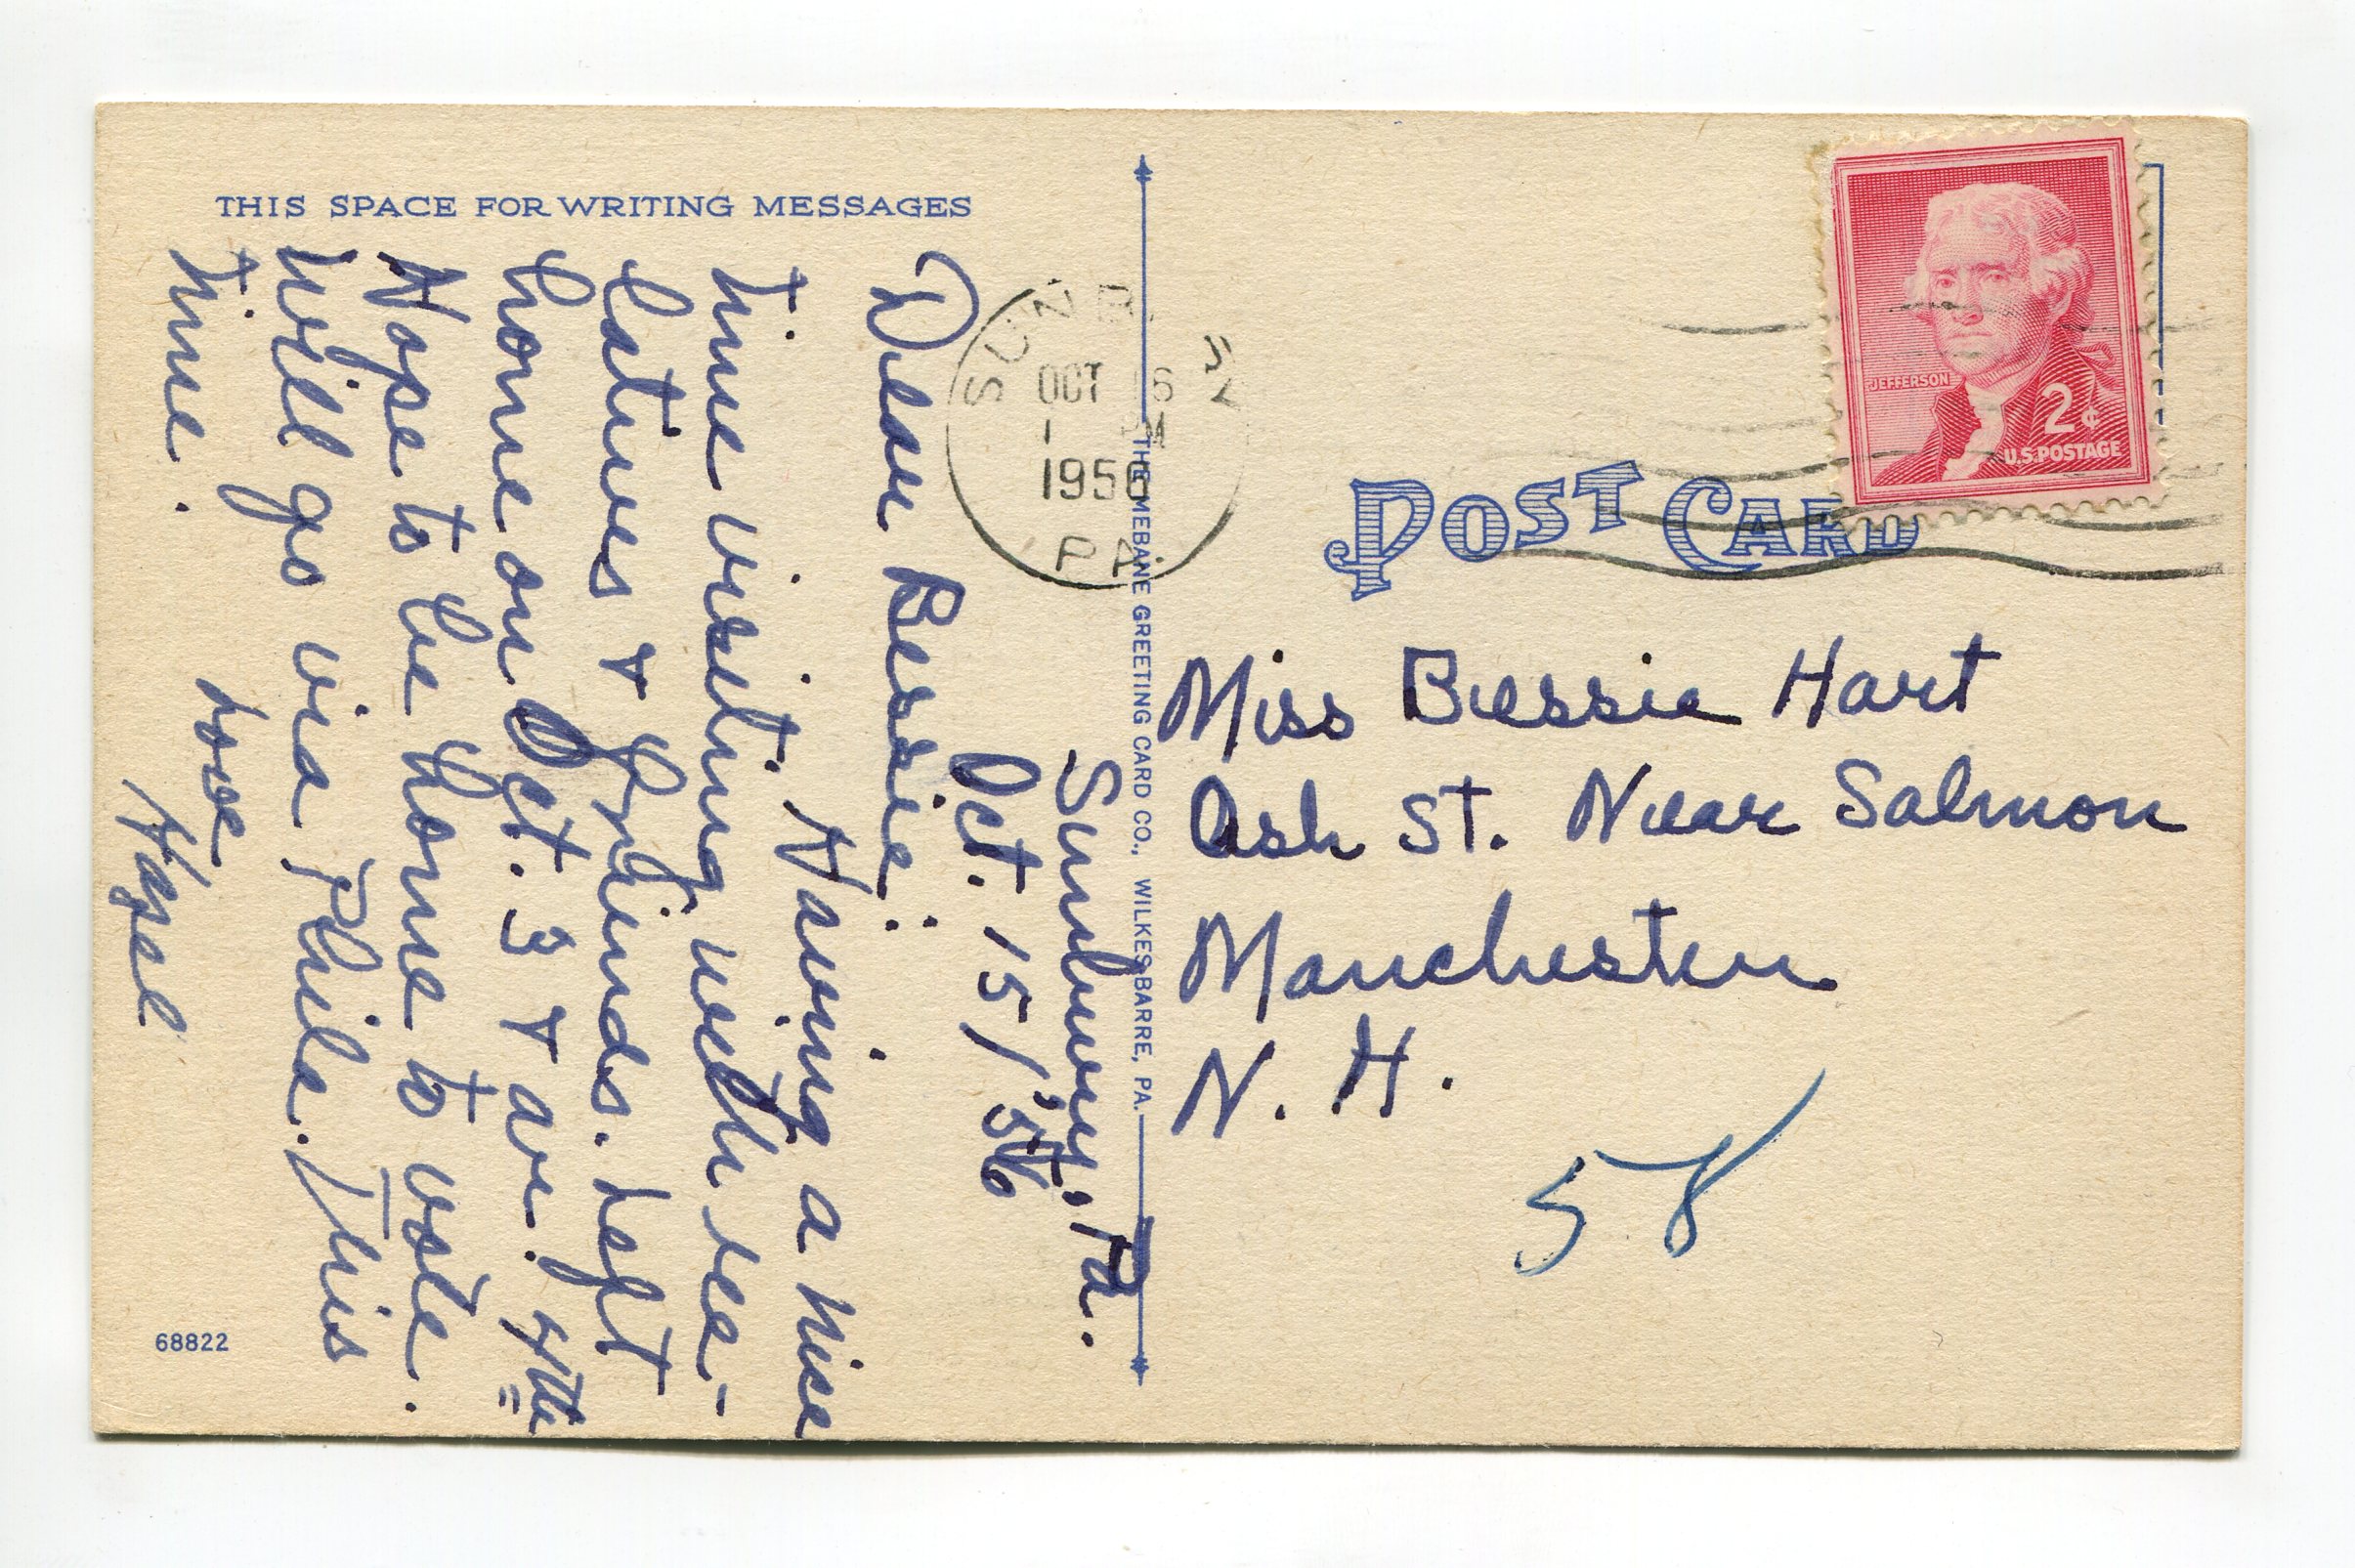 THIS SPACE FOR WRITING MESSAGES
Sunbury, Pa.
Oct. 15/'56
Dear Bessie:
Having a nice
time visiting with re-
latives & friends. Left
home on Oct. 3 & ar.
Hope to be home to vote.
Will go via Phila. This
time.
Love
Hazel
68822
SUNBURY
OCT 16
1956
PA.
THE MEBANE GREETING CARD CO., WILKES-BARRE, PA.
POST CARD
JEFFERSON
2¢
U.S. POSTAGE
Miss Bessie Hart
Ash St. Near Salmon
Manchester
N. H.
58